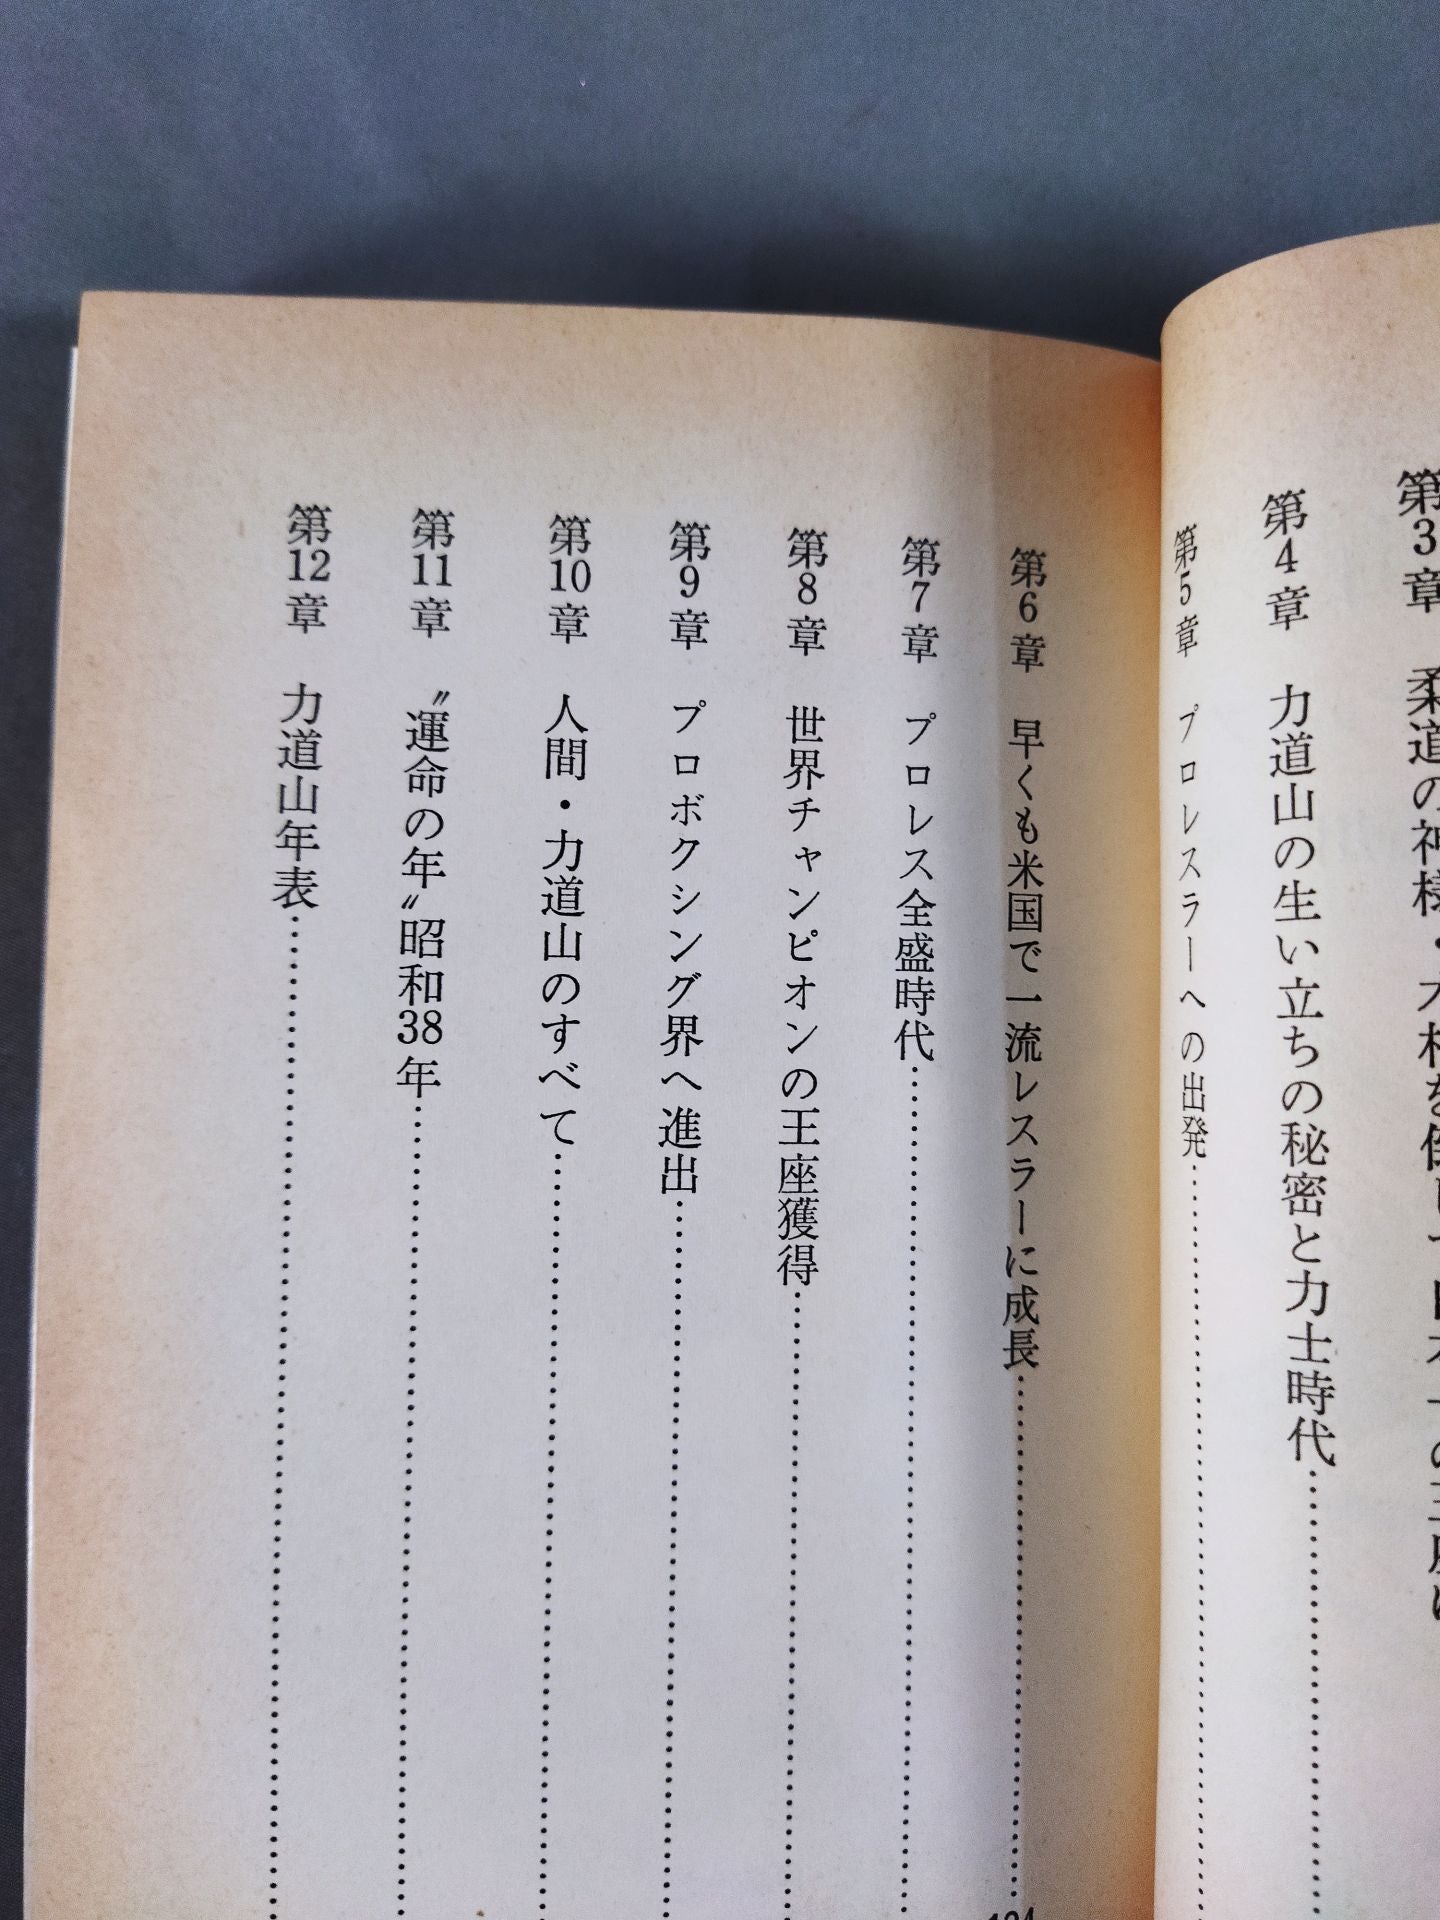 第3章 柔道の神様・木村を倒して日本一の王座に
第4章 力道山の生い立ちの秘密と力士時代
第5章 プロレスラーへの出発
第6章 早くも米国で一流レスラーに成長
第7章 プロレス全盛時代
第8章 世界チャンピオンの王座獲得
第9章 プロボクシング界へ進出
第10章 人間・力道山のすべて
第11章 〝運命の年〟昭和38年
第12章 力道山年表